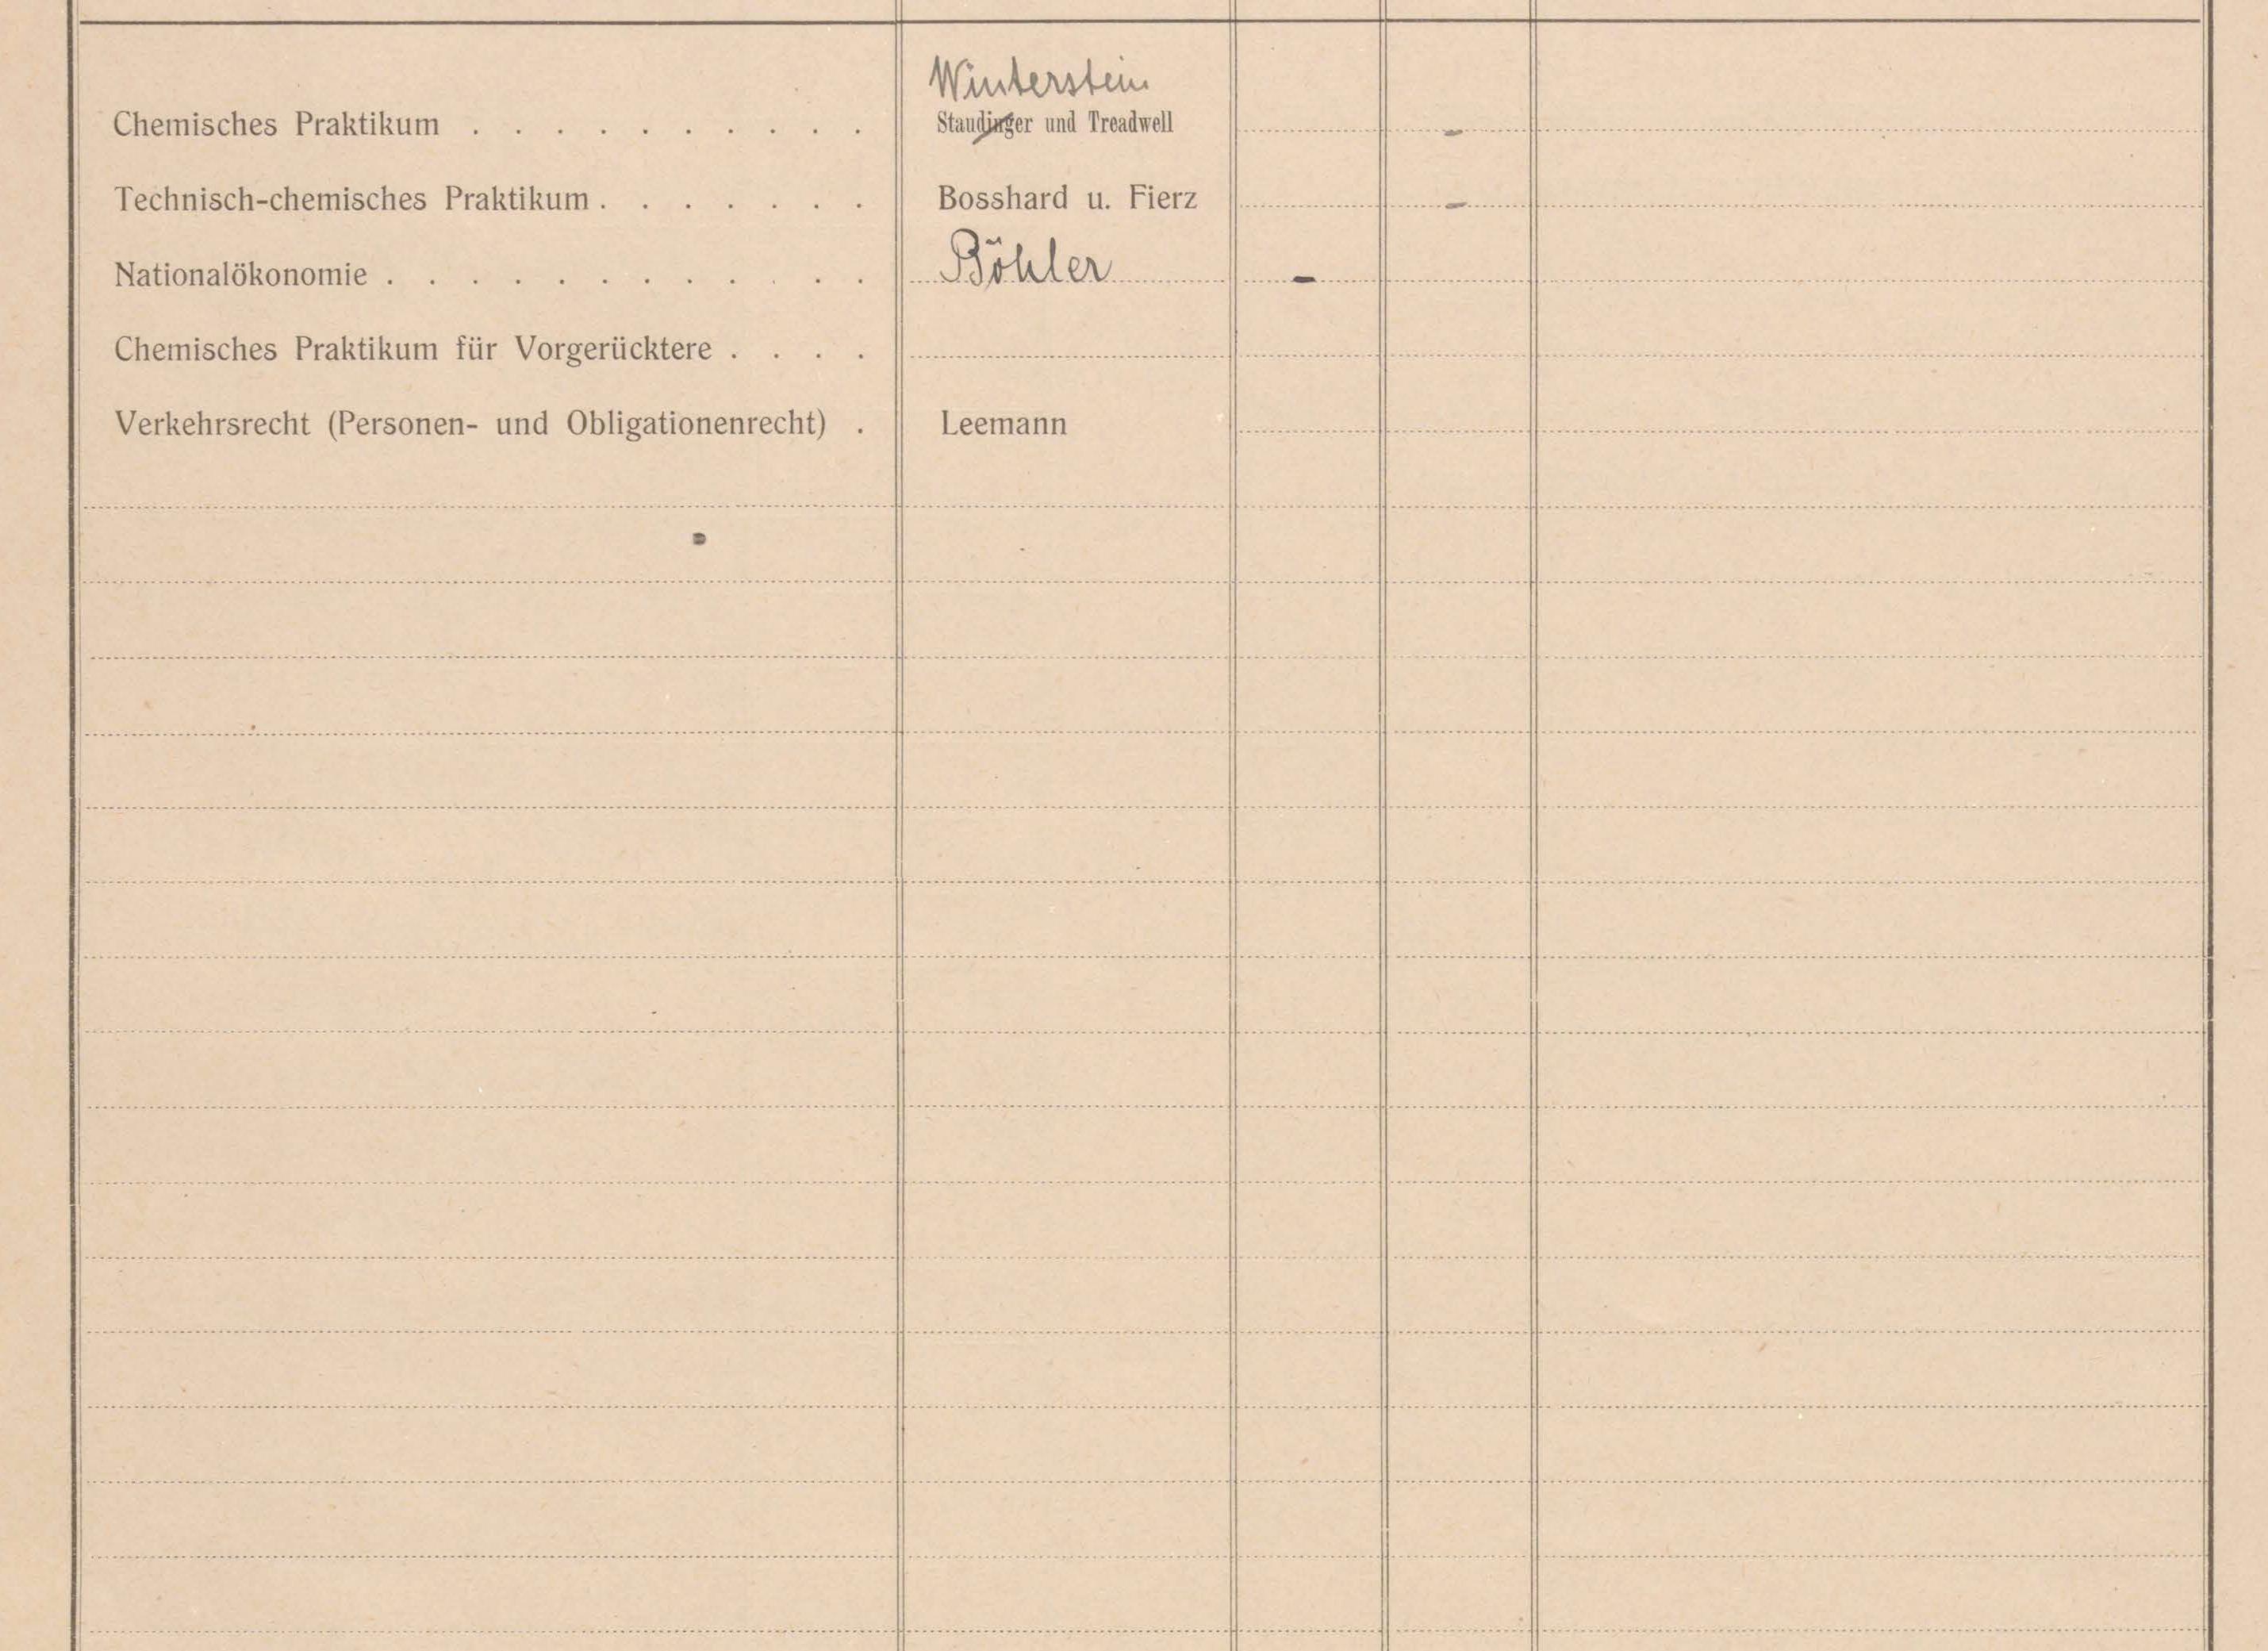 Winterstein
Chemisches Praktikum . . . . . . . . . . Staudinger und Treadwell -
Technisch-chemisches Praktikum . . . . . . . Bosshard u. Fierz -
Nationalökonomie . . . . . . . . . . . . Böhler -
Chemisches Praktikum für Vorgerücktere . . . .
Verkehrsrecht (Personen- und Obligationenrecht) . Leemann